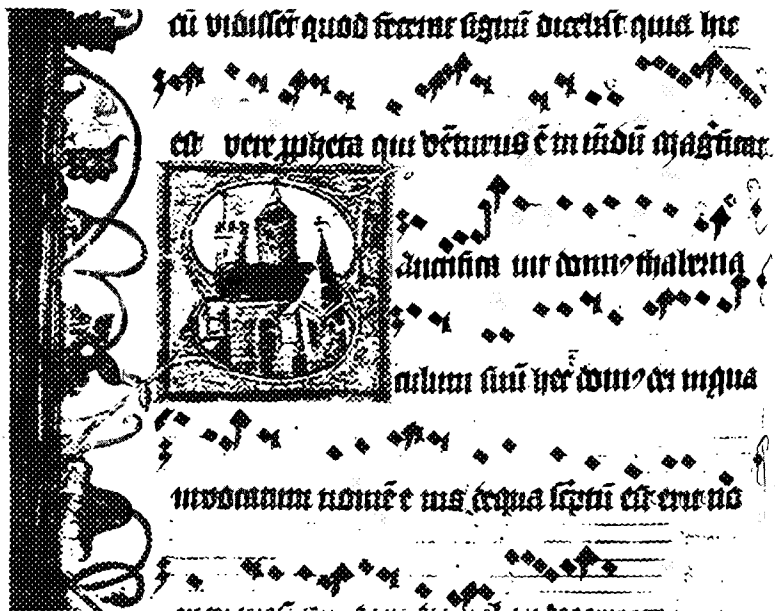 cū vidissēt quod fecerat signū dicebāt quia hic
est vere ꝓpheta qui vēturus ē in mūdū Magnificat
anctificavit domin᷒ thaberna
culum suū hec ē dom᷒ dei in qua
invocatum nomē e ius de qua scptū est erit no